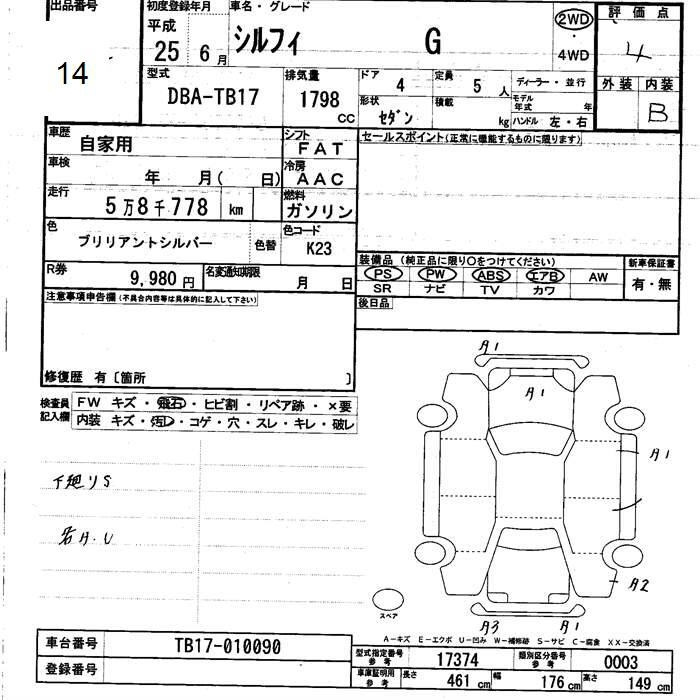 出品番号
14
初度登録年月
平成
25 6月
車名・グレード
シルフィ G
2WD
・
4WD
評価点
4
外装 内装
B
型式
DBA-TB17
排気量
1798
CC
ドア 4
定員 5 人
ディーラー・並行
形状 セダン
積載 kg
モデル年式 年
ハンドル 左・右
車歴
自家用
シフト
FAT
車検
年 月( 日)
冷房
AAC
走行
5万8千778 km
燃料
ガソリン
色
ブリリアントシルバー
色替
色コード
K23
R券
9,980円
名変通知期限
月 日
セールスポイント(正常に機能するものに限ります)
装備品(純正品に限り○をつけてください)
PS PW ABS エアB AW
SR ナビ TV カワ
新車保証書
有・無
後日品
注意事項申告欄(不具合内容等は具体的に記入して下さい)
修復歴 有〔箇所 〕
検査員
記入欄
FW キズ・飛石・ヒビ割・リペア跡・×要
内装 キズ・汚レ・コゲ・穴・スレ・キレ・破レ
下廻りS
A1
A1
A1
A2
A3
A1
スペア
A-キズ E-エクボ U-凹み W-補修跡 S-サビ C-腐食 XX-交換済
車台番号
TB17-010090
登録番号
型式指定番号
参考
17374
類別区分番号
参考
0003
車庫証明用
参考
長さ
461 cm
幅
176 cm
高さ
149 cm